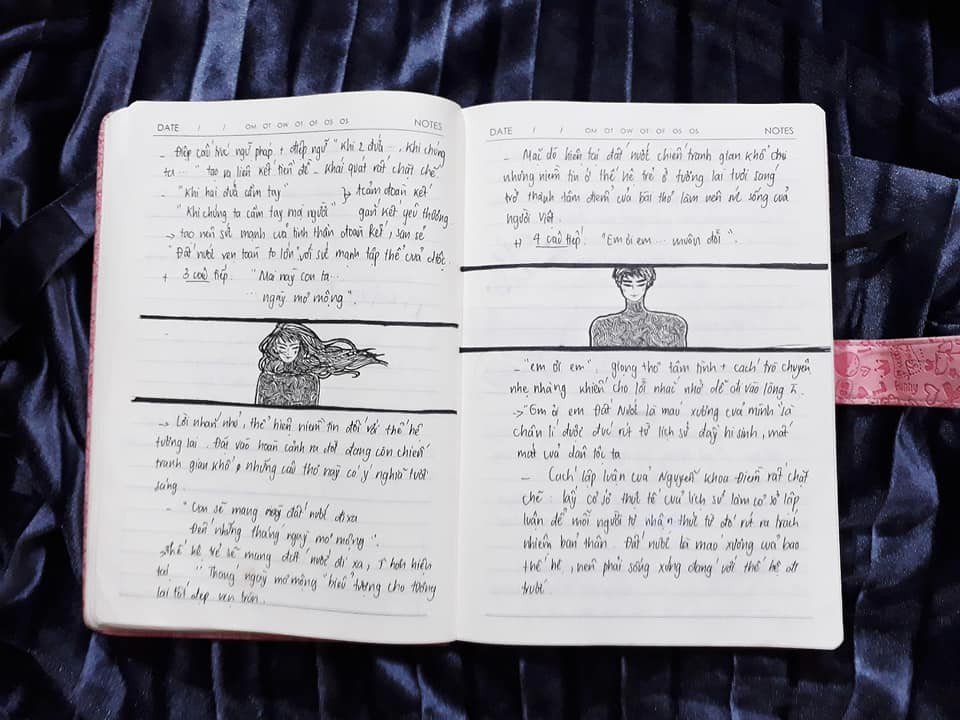 DATE / / OM OT OW OT OF OS OS NOTES
- Điệp cấu trúc ngữ pháp + điệp ngữ "Khi 2 đứa ..., Khi chúng
ta ..." tạo ra liên kết tiền đề - khái quát rất chặt chẽ
- "Khi hai đứa cầm tay" } tcảm đoàn kết
"Khi chúng ta cầm tay mọi người" gắn kết yêu thương
→ tạo nên sức mạnh của tinh thần đoàn kết, san sẻ
"Đất nước vẹn toàn to lớn" với sức mạnh tập thể của
+ 3 câu tiếp. "Mai này con ta ...
... ngày mơ mộng".
→ Lời nhắn nhủ, thể hiện niềm tin đối với thế hệ
tương lai. Đặt vào hoàn cảnh ra đời đang còn chiến
tranh gian khổ, những câu thơ này có ý nghĩa tươi
sáng.
- "Con sẽ mang này đất nước đi xa
Đến những tháng ngày mơ mộng".
→ thế hệ trẻ sẽ mang đất nước đi xa, hơn hiện
tại. "Tháng ngày mơ mộng" biểu tượng cho tương
lai tốt đẹp vẹn tròn.
DATE / / OM OT OW OT OF OS OS NOTES
- Mặc dù hiện tại đất nước chiến tranh gian khổ
nhưng niềm tin ở thế hệ trẻ ở tương lai tươi sáng
trở thành tâm điểm của bài thơ làm nên sức sống của
người Việt.
+) 4 câu tiếp. "Em ơi em ... muôn đời".
- "em ơi em": giọng thơ tâm tình + cách trò chuyện
nhẹ nhàng khiến cho lời nhắc nhở dễ đi vào lòng
→ "Em ơi em Đất Nước là máu xương của mình" là
chân lí được đúc rút từ lịch sử đầy hi sinh, mất
mát của dân tộc ta
- Cách lập luận của Nguyễn Khoa Điềm rất chặt
chẽ: lấy cơ sở thực tế của lịch sử làm cơ sở lập
luận để mỗi người tự nhận thức từ đó rút ra trách
nhiệm bản thân. Đất nước là máu xương của bao
thế hệ, nên phải sống xứng đáng với thế hệ đi
trước.
Funny